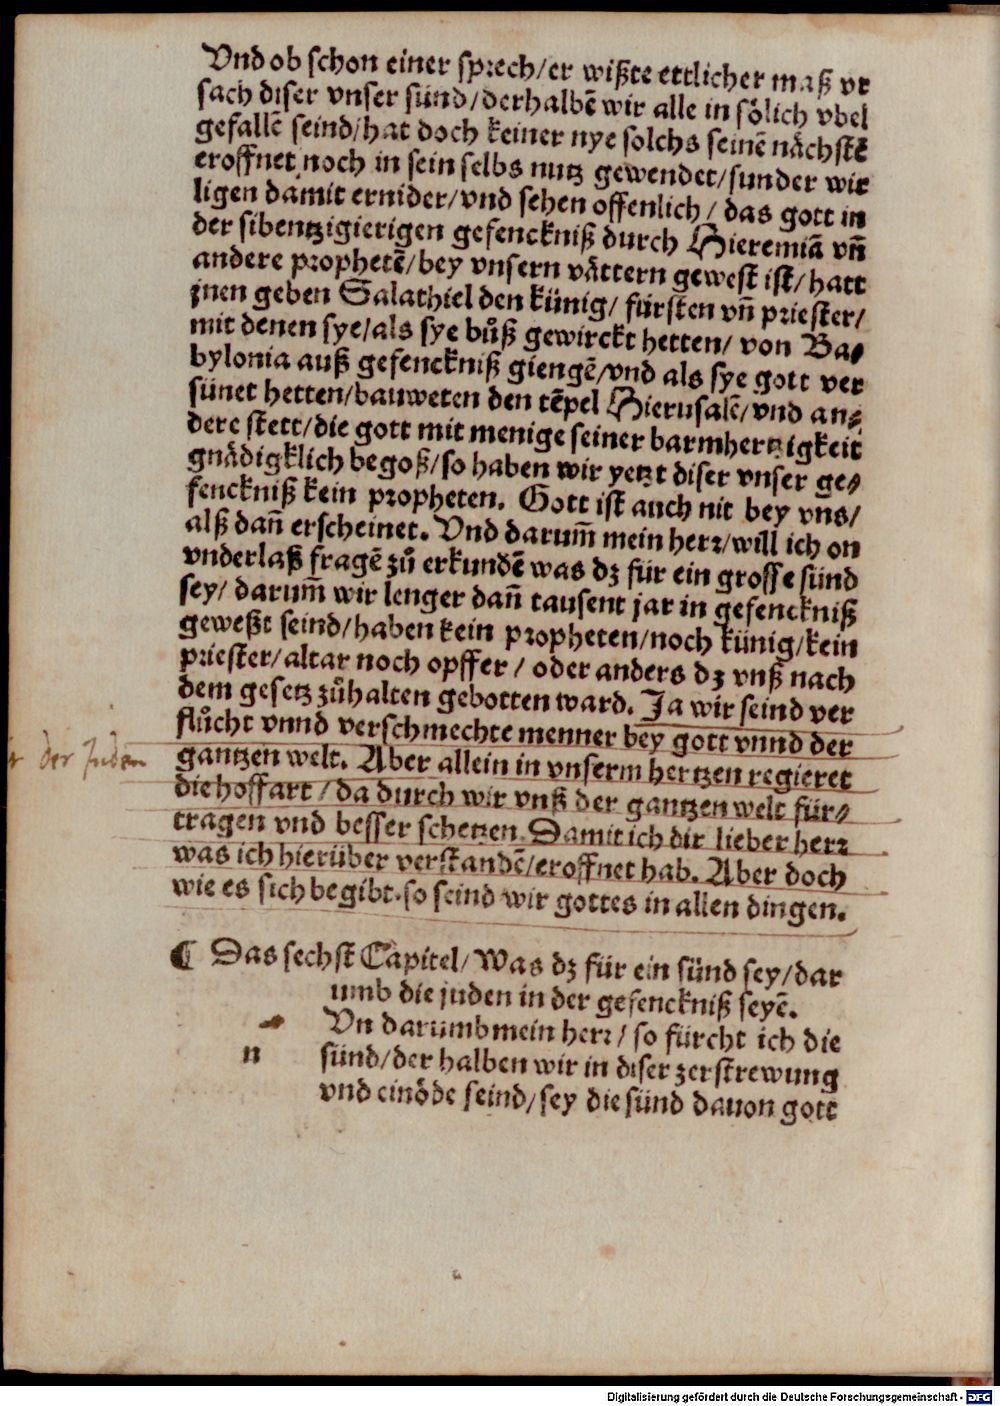 Vnd ob schon einer sprech/er wißte ettlicher maß vr
sach diser vnser sünd/derhalbē wir alle in sölich vbel
gefallē seind/hat doch keiner nye solchs seinē nächstē
eroffnet noch in sein selbs nutz gewendet/sunder wir
ligen damit ernider/vnd sehen offenlich/ das gott in
der sibentzigierigen gefenckniß durch Hieremiā vn̄
andere prophetē/bey vnsern vättern gewest ist/hatt
jnen geben Salathiel den künig/ fürsten vn̄ priester/
mit denen sye/als sye bůß gewirckt hetten/ von Ba⸗
bylonia auß gefenckniß giengē/vnd als sye gott ver
sünet hetten/bauweten den tēpel Hierusalē/vnd an⸗
dere stett/die gott mit menige seiner barmhertzigkeit
gnädigklich begoß/so haben wir yetzt diser vnser ge⸗
fenckniß kein propheten. Gott ist auch nit bey vns/
alß dan̄ erscheinet. Vnd darum̄ mein herr/will ich on
vnderlaß fragē zů erkundē was dz für ein grosse sünd
sey/ darum̄ wir lenger dan̄ tausent jar in gefenckniß
geweßt seind/haben kein propheten/noch künig/kein
priester/altar noch opffer/ oder anders dz vnß nach
dem gesetz zůhalten gebotten ward. Ja wir seind ver
flůcht vnnd verschmechte menner bey gott vnnd der
gantzen welt. Aber allein in vnserm hertzen regieret
die hoffart/da durch wir vnß der gantzen welt für⸗
tragen vnd besser schetzen. Damit ich dir lieber herr
was ich hierüber verstandē/eroffnet hab. Aber doch
wie es sich begibt. so seind wir gottes in allen dingen.
der Juden
¶ Das sechst Capitel/ Was dz für ein sünd sey/dar
umb die juden in der gefenckniß seyē.
Vn darumb mein herr/ so fürcht ich die
n sünd/der halben wir in diser zerstrewung
vnd einöde seind/sey die sünd dauon gott
Digitalisierung gefördert durch die Deutsche Forschungsgemeinschaft - DFG